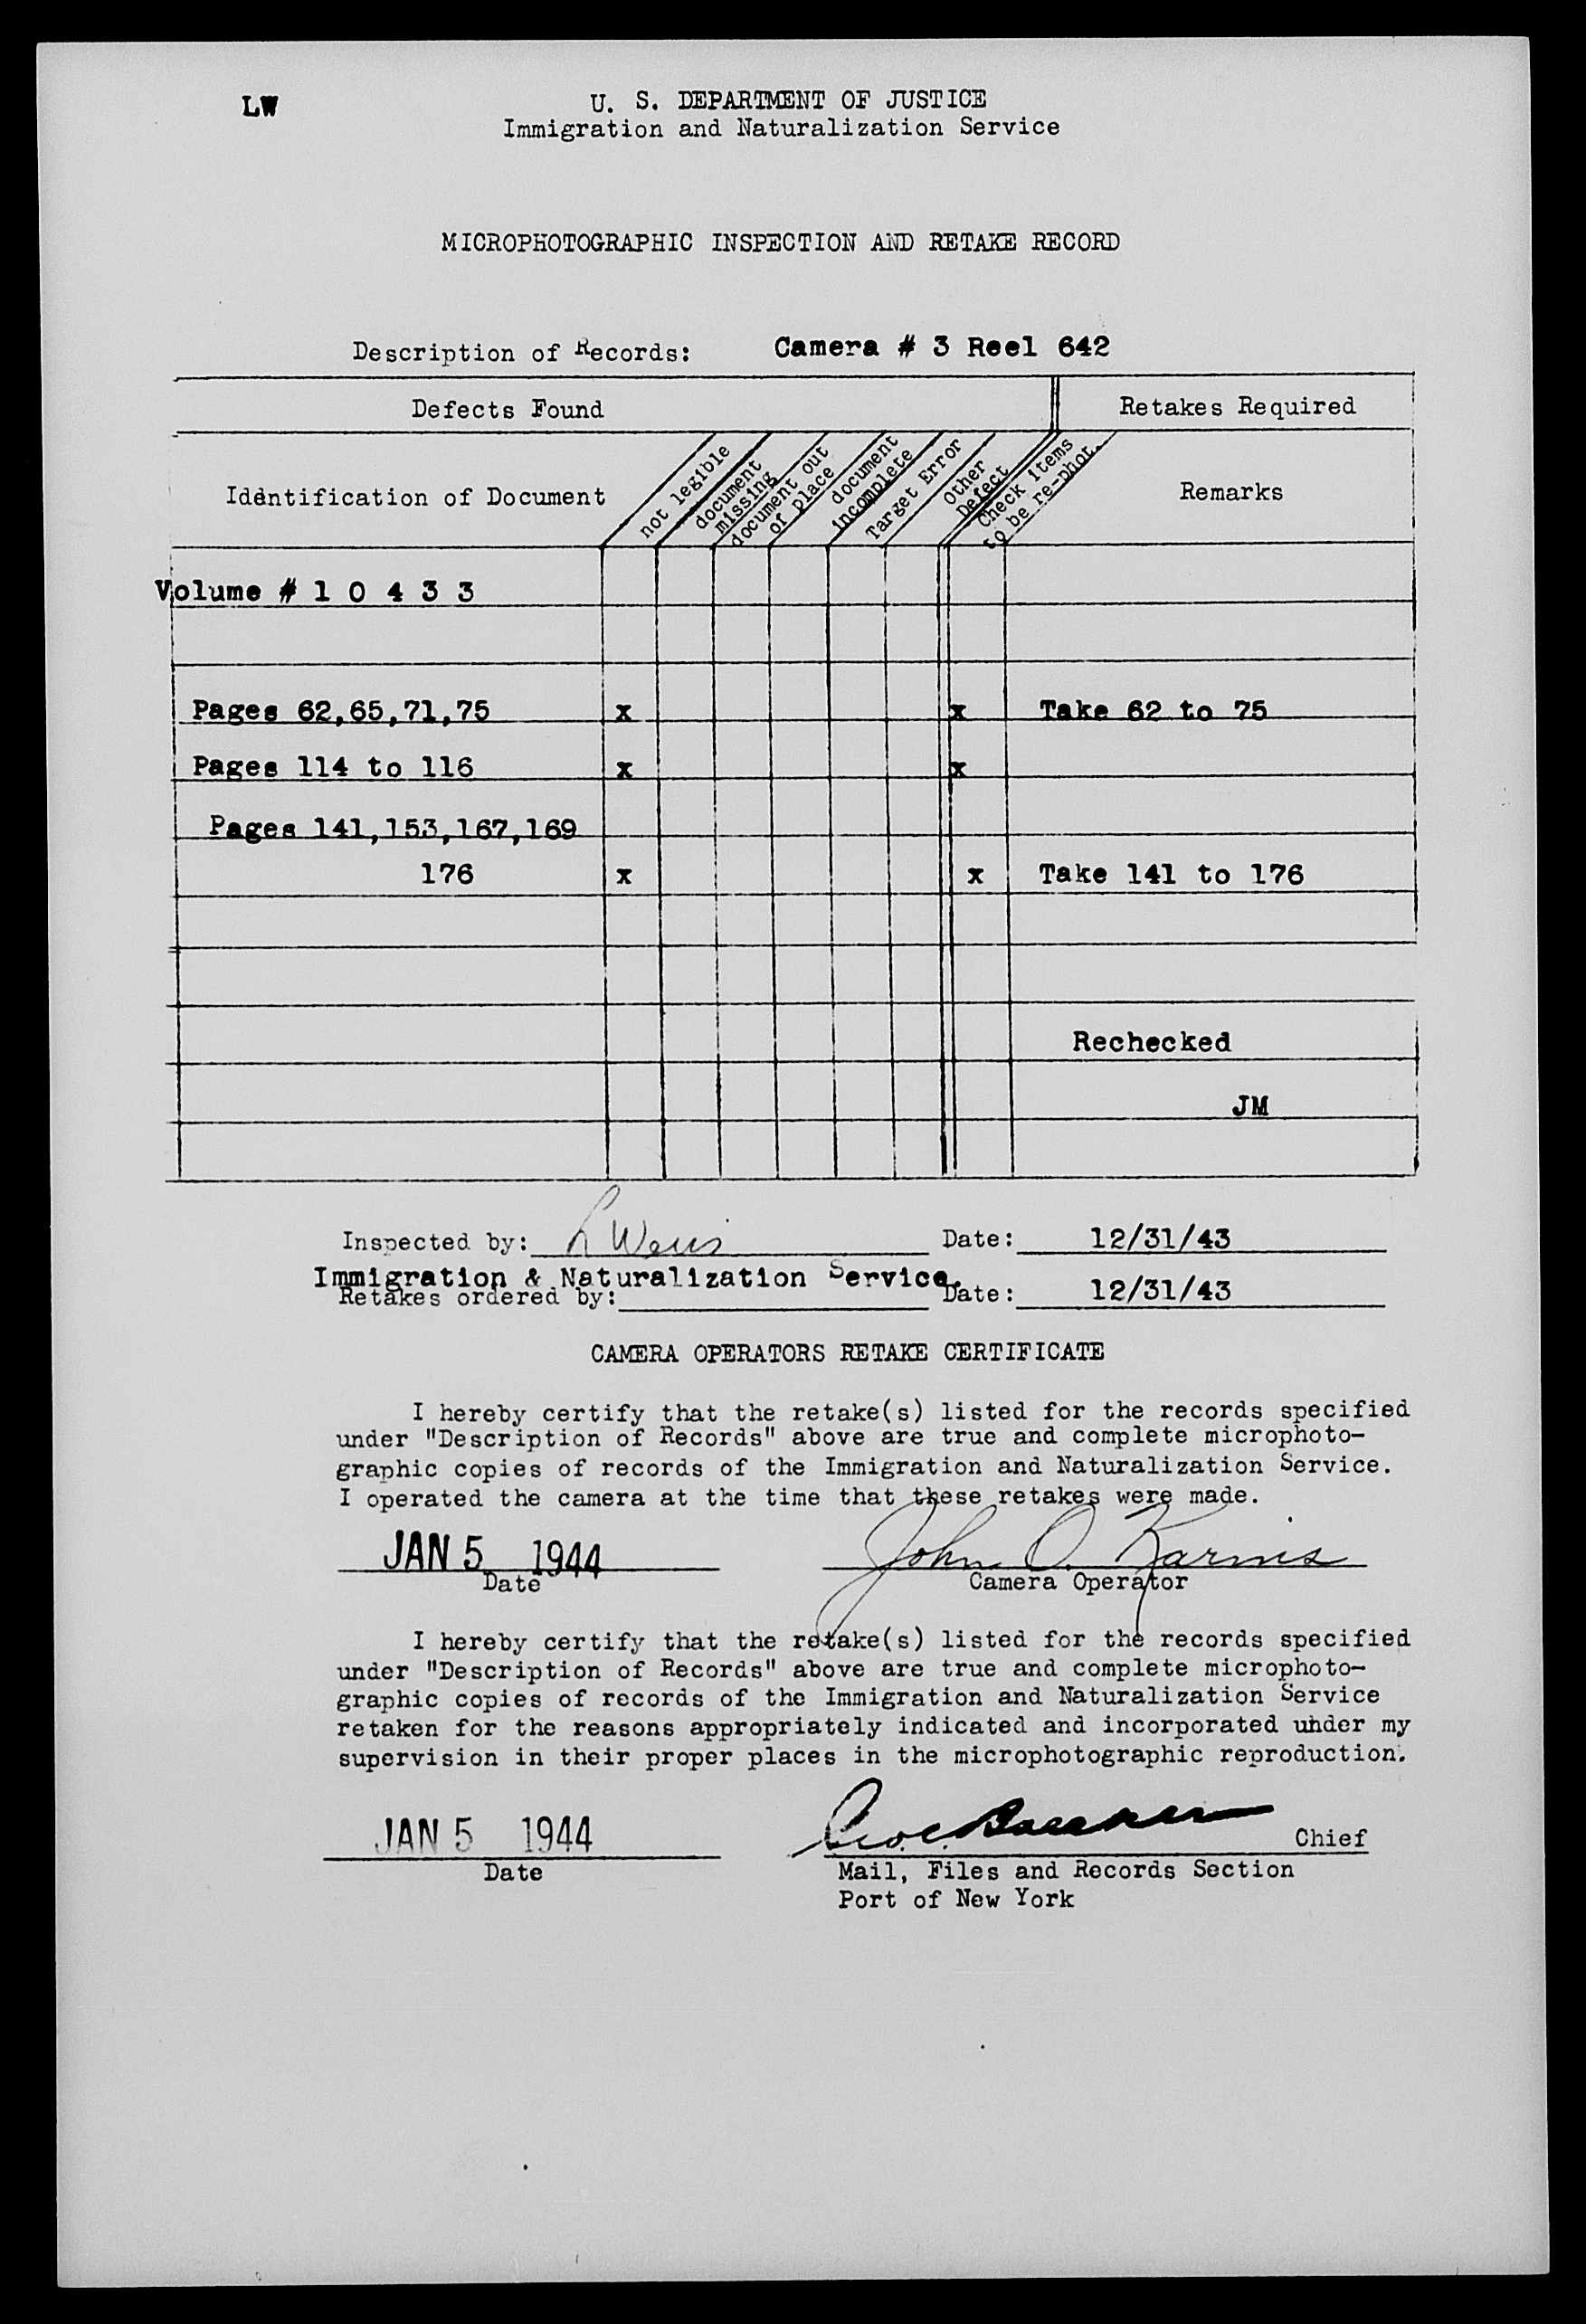 LW
U. S. DEPARTMENT OF JUSTICE
Immigration and Naturalization Service
MICROPHOTOGRAPHIC INSPECTION AND RETAKE RECORD
Description of Records: Camera # 3 Reel 642
Defects Found Retakes Required
Identification of Document not legible document missing document out of place document incomplete Target Error Other Defect Check items to be re-phot. Remarks
Volume # 1 0 4 3 3
Pages 62,65,71,75 x x Take 62 to 75
Pages 114 to 116 x x
Pages 141,153,167,169
176 x x Take 141 to 176
Rechecked
JM
Inspected by: L Weiss Date: 12/31/43
Immigration & Naturalization Service.
Retakes ordered by: Date: 12/31/43
CAMERA OPERATORS RETAKE CERTIFICATE
I hereby certify that the retake(s) listed for the records specified
under "Description of Records" above are true and complete microphoto-
graphic copies of records of the Immigration and Naturalization Service.
I operated the camera at the time that these retakes were made.
JAN 5 1944 John O. Karins
Date Camera Operator
I hereby certify that the retake(s) listed for the records specified
under "Description of Records" above are true and complete microphoto-
graphic copies of records of the Immigration and Naturalization Service
retaken for the reasons appropriately indicated and incorporated under my
supervision in their proper places in the microphotographic reproduction.
JAN 5 1944 Chief
Date Mail, Files and Records Section
Port of New York